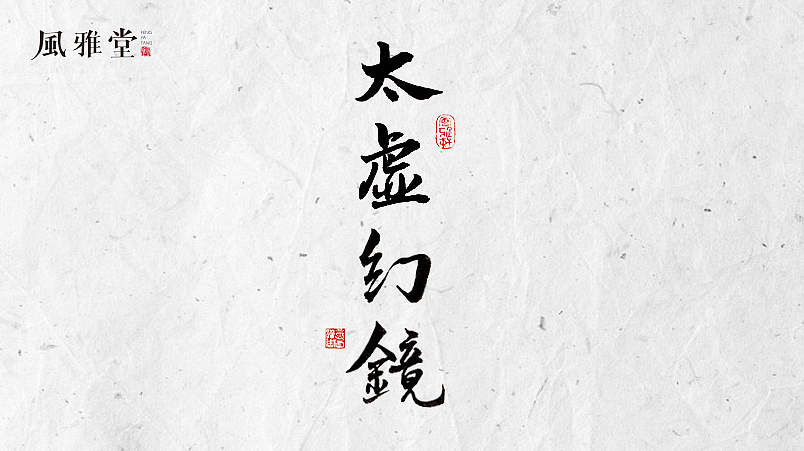 風雅堂
FENG
YA
TANG
太虛幻鏡